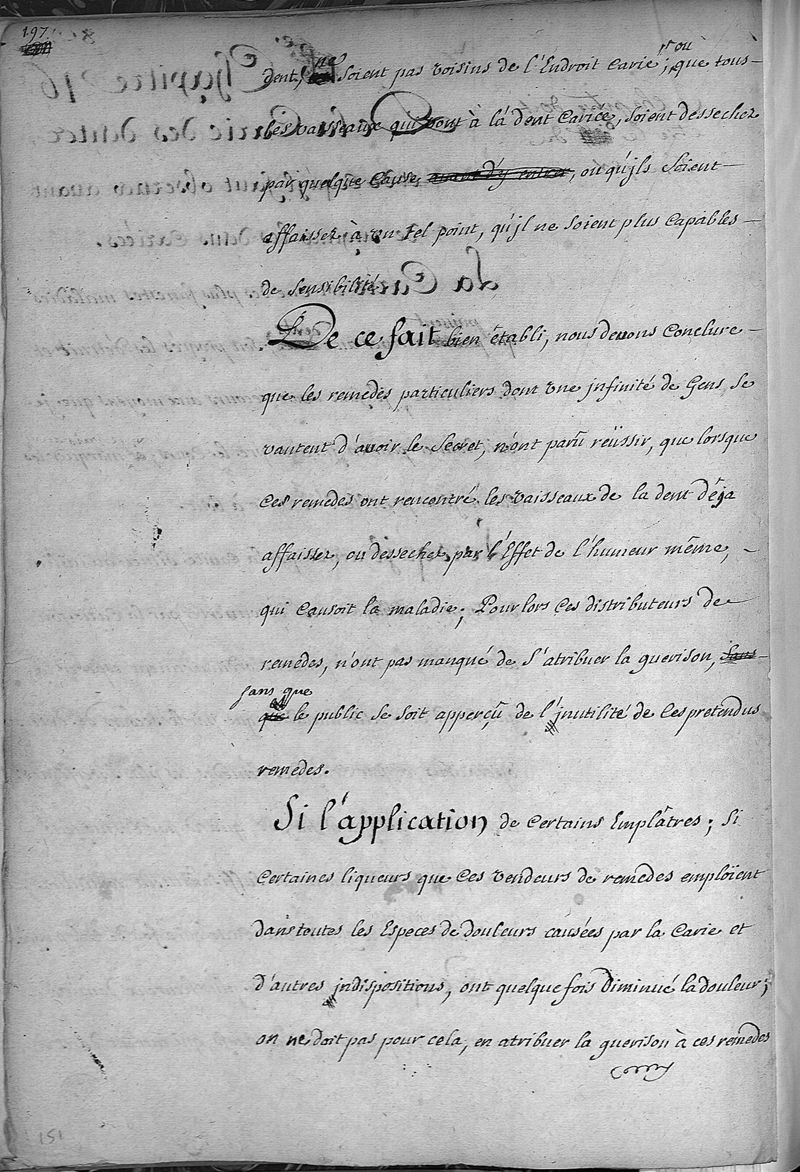 197
ne ou
dent, soient pas voisins de l'Endroit Carié; que tous
les vaisseaux qui vont à la dent Cariée, soient dessechez
par quelque Cause avant d'y entrer, ou qu'ils soient
affaissez à un tel point, qu'jl ne soient plus Capables
de sensibilité.
De ce fait bien établi, nous devons Conclure
que les remedes particuliers dont vne jnfinité de Gens, se
vantent d'avoir le Secret, n'ont parû reüssir, que lorsque
Ces remedes ont rencontré les vaisseaux de la dent Déja
affaissez, ou dessechez par l'Effet de l'humeur même,
qui Causoit la maladie; Pour lors Ces distributeurs de
remedes, n'ont pas manqué de S'atribuer la guerison, sans
sans que
que le public se soit apperçû de l'jnutilité de Ces pretendus
remedes.
Si l'application de Certains Emplâtres; Si
Certaines liqueurs que Ces vendeurs de remedes emploïent
dans toutes les Especes de douleurs causées par la Carie et
D'autres jndispositions, ont quelque fois Diminué la douleur;
on ne doit pas pour cela, en atribuer la guerison à ces remedes
151